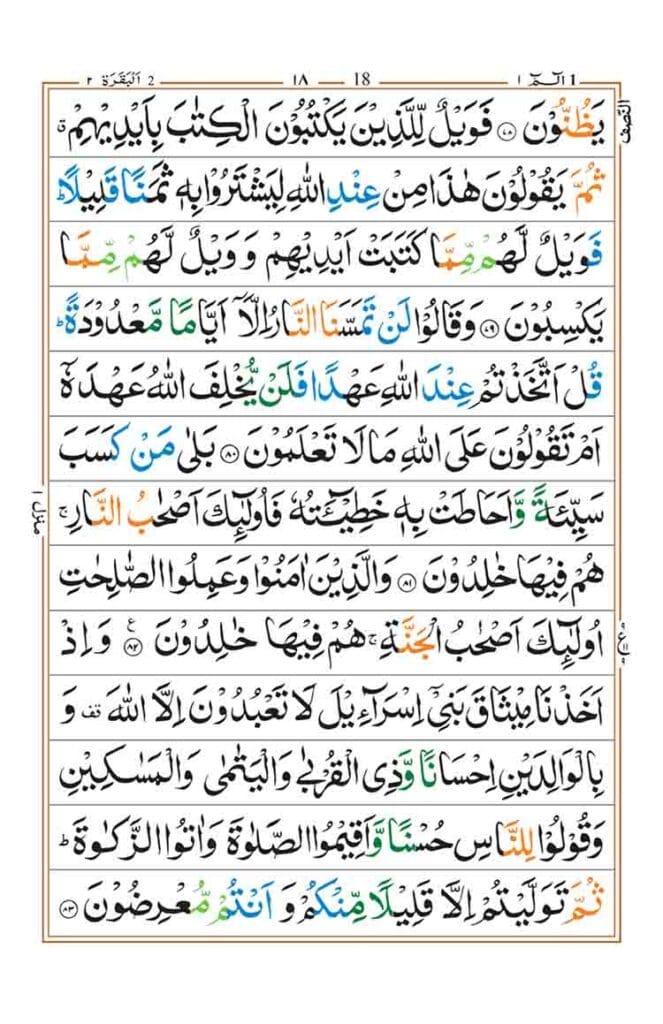 1 الٓـمّٓ ١ 18 ١٨ 2 اَلْبَقَرَة ٢
النصف
يَظُنُّوْنَ ۟﴿۷۸﴾ فَوَيْلٌ لِّلَّذِيْنَ يَكْتُبُوْنَ الْكِتٰبَ بِاَيْدِيْهِمْ ۗ
ثُمَّ يَقُوْلُوْنَ هٰذَا مِنْ عِنْدِ اللّٰهِ لِيَشْتَرُوْا بِهٖ ثَمَنًا قَلِيْلًا ؕ
فَوَيْلٌ لَّهُمْ مِّمَّا كَتَبَتْ اَيْدِيْهِمْ وَ وَيْلٌ لَّهُمْ مِّمَّا
يَكْسِبُوْنَ ﴿۷۹﴾ وَقَالُوْا لَنْ تَمَسَّنَا النَّارُ اِلَّاۤ اَيَّامًا مَّعْدُوْدَةً ؕ
قُلْ اَتَّخَذْتُمْ عِنْدَ اللّٰهِ عَهْدًا فَلَنْ يُّخْلِفَ اللّٰهُ عَهْدَهٗۤ
اَمْ تَقُوْلُوْنَ عَلَى اللّٰهِ مَا لَا تَعْلَمُوْنَ ﴿۸۰﴾ بَلٰى مَنْ كَسَبَ
سَيِّئَةً وَّاَحَاطَتْ بِهٖ خَطِيْٓـَٔتُهٗ فَاُولٰٓئِكَ اَصْحٰبُ النَّارِ ۚ
هُمْ فِيْهَا خٰلِدُوْنَ ﴿۸۱﴾ وَالَّذِيْنَ اٰمَنُوْا وَعَمِلُوا الصّٰلِحٰتِ
اُولٰٓئِكَ اَصْحٰبُ الْجَنَّةِ ۚ هُمْ فِيْهَا خٰلِدُوْنَ ﴿۸۲﴾ ع وَاِذْ
اَخَذْنَا مِيْثَاقَ بَنِيْٓ اِسْرَآءِيْلَ لَا تَعْبُدُوْنَ اِلَّا اللّٰهَ قف وَ
بِالْوَالِدَيْنِ اِحْسَانًا وَّذِي الْقُرْبٰى وَالْيَتٰمٰى وَالْمَسٰكِيْنِ
وَقُوْلُوْا لِلنَّاسِ حُسْنًا وَّاَقِيْمُوا الصَّلٰوةَ وَاٰتُوا الزَّكٰوةَ ؕ
ثُمَّ تَوَلَّيْتُمْ اِلَّا قَلِيْلًا مِّنْكُمْ وَ اَنْتُمْ مُّعْرِضُوْنَ ﴿۸۳﴾
منزل ١